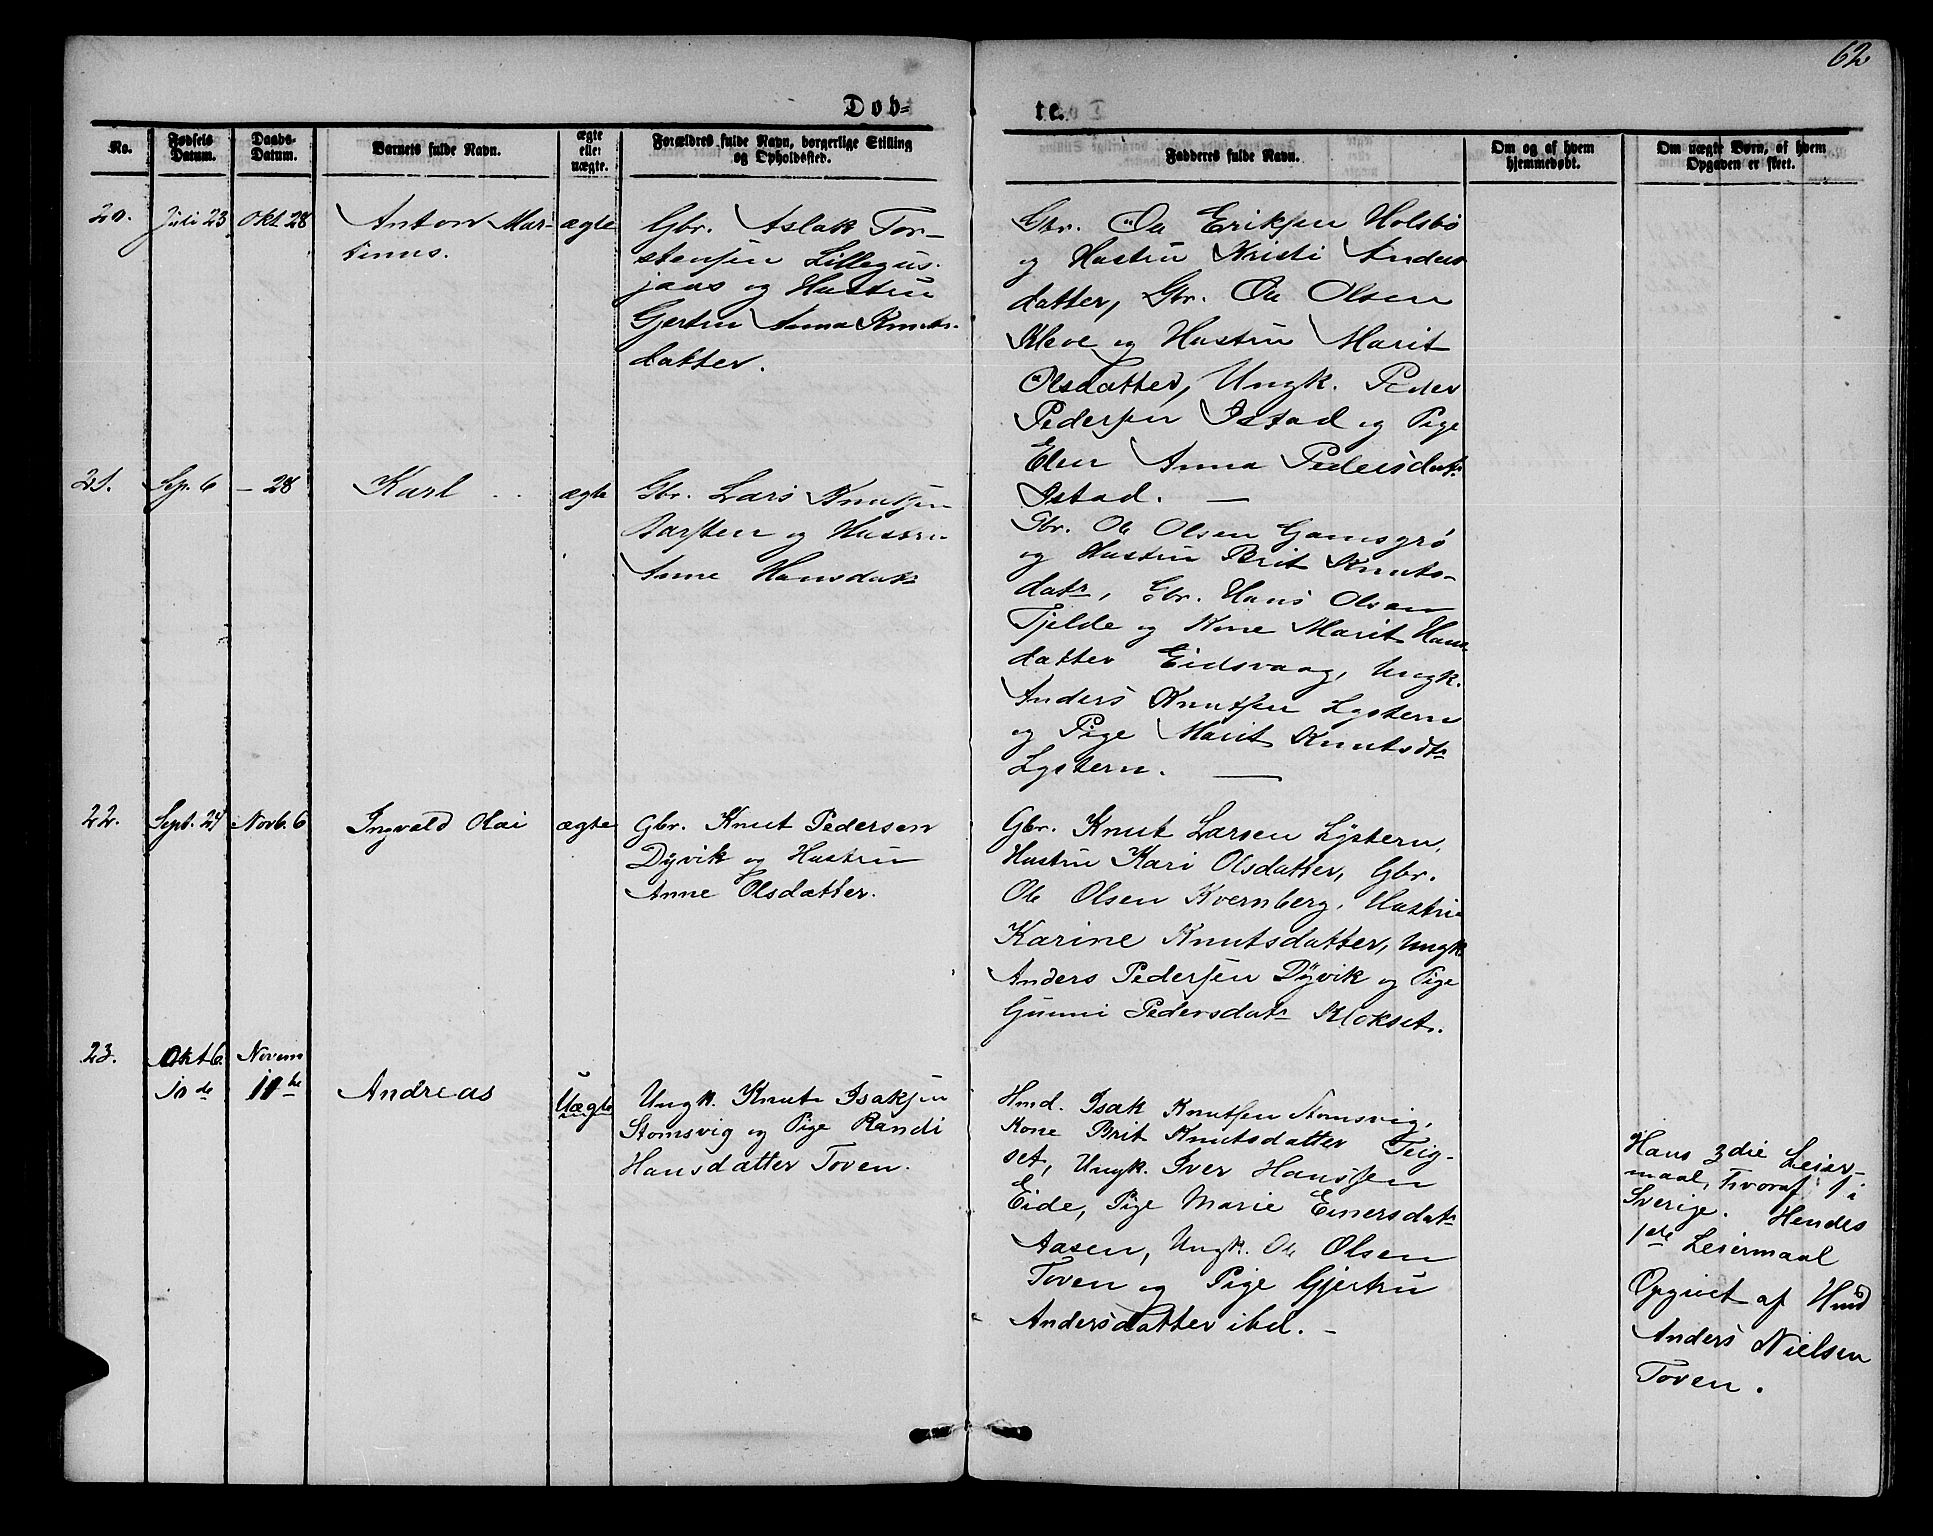 62
Døb=
te.
No.
Fødsels Datum.
Daabs-Datum.
Barnets fulde Navn.
ægte eller uægte.
Forældres fulde Navn, borgerlige Stilling og Opholdssted.
Fadderes fulde Navn.
Om og af hvem hjemmedøbt.
Om uægte Børn, af hvem Opgaven er skeet.
20.
Juli 23
Okt. 28
Anton Mar-
tinus.
ægte
Gbr. Aslak Tor-
stensen Lillegus-
jaas og Hustru
Gjertru Anna Knuts-
datter.
Gbr. Ole Eriksen Holsbø
og Hustru Kristi Anders
datter, Gbr. Ole Olsen
Kleve og Hustru Marit
Olsdatter, Ungk. Peder
Pedersen Istad og Pige
Elen Anna Pedersdatr
Istad. —
21.
Sep. 6
– 28
Karl
ægte
Gbr. Lars Knutsen
Barsten og Hustru
Anne Hansdatr
Gbr. Ole Olsen Gamsgrø
og Hustru Brit Knuts-
datr, Gbr. Hans Olsen
Tjelde og Kone Marit Hans
datter Eidsvaag, Ungk.
Anders Knutsen Lystern
og Pige Marit Knutsdtr
Lystern. —
22.
Sept. 24
Novb. 6
Ingvald Olai
ægte
Gbr. Knut Pedersen
Dyvik og Hustru
Anne Olsdatter.
Gbr. Knut Larsen Lystern,
Hustru Kari Olsdatter, Gbr.
Ole Olsen Kvernberg, Hustru
Karine Knutsdatter, Ungk
Anders Pedersen Dyvik og Pige
Gunni Pedersdatr Klokset.
23.
Okt 6.
10de
Novem
11te
Andreas
Uægte
Ungk. Knut Isaksen
Stomsvig og Pige Randi
Hansdatter Toven.
Hmd. Isak Knutsen Stomsvig,
Kone Brit Knutsdatter Teig-
set, Ungk. Iver Hanssen
Eide, Pige Marie Einersdatr
Aasen, Ungk. Ole Olsen
Toven og Pige Gjertru
Andersdatter ibd. –
Hans 3die Leier-
maal, hvoraf 1 i
Sverige. Hendes
1ste Leiermaal
Opgivet af Hmd
Anders Nielsen
Toven.